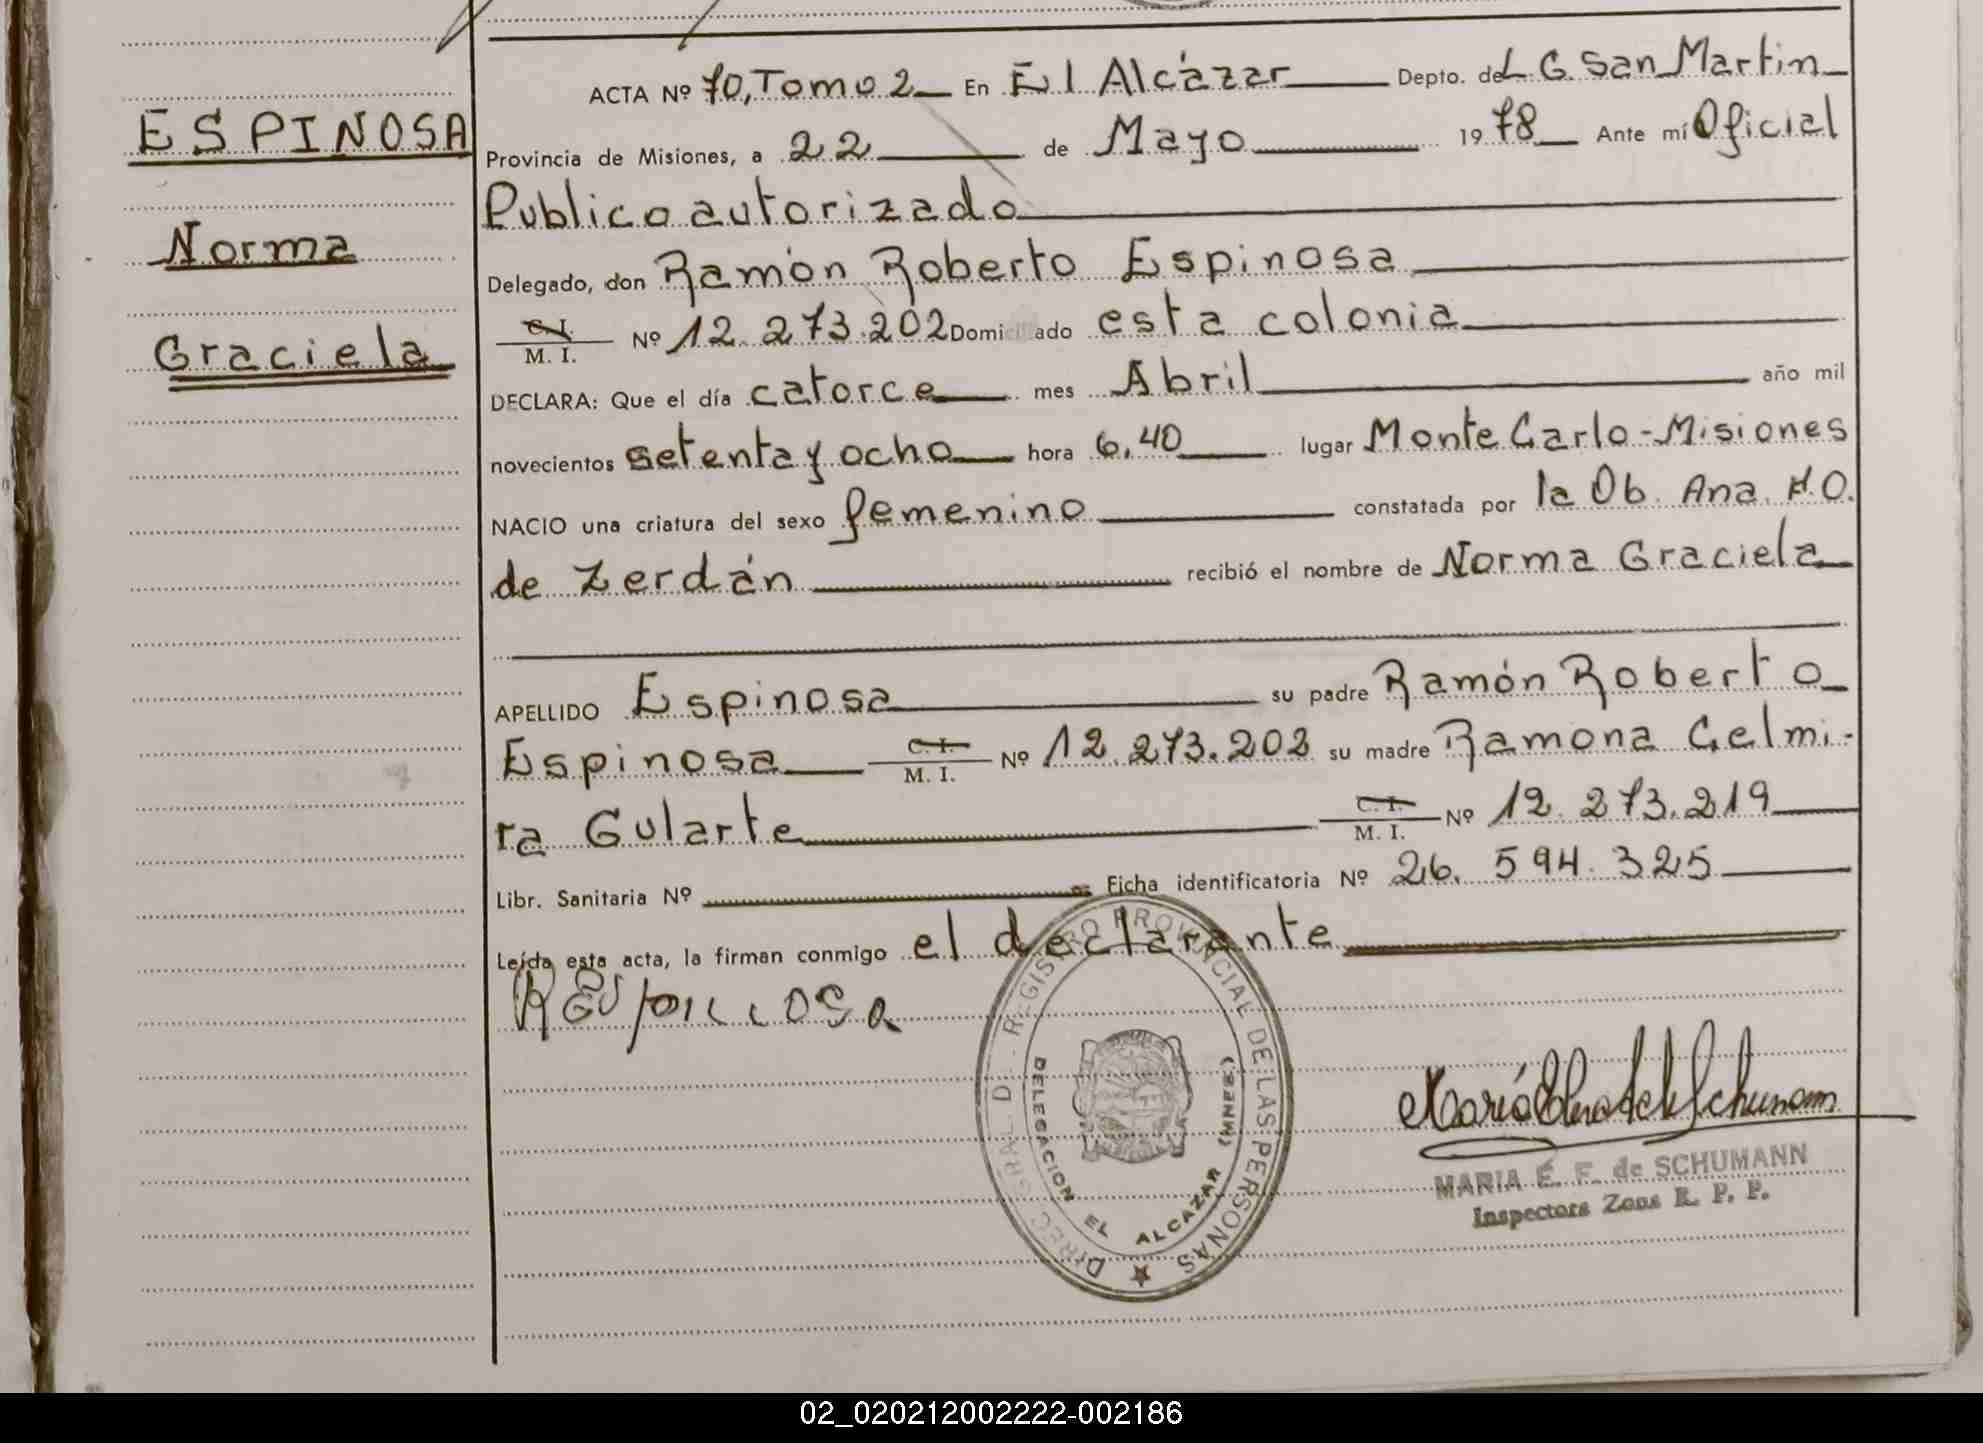 ESPINOSA
Norma
Graciela
ACTA Nº 70, Tomo 2 En El Alcázar Depto. de L. G. San Martin
Provincia de Misiones, a 22 de Mayo 1978 Ante mí Oficial
Publico autorizado
Delegado, don Ramón Roberto Espinosa
C. I.
M. I. Nº 12.273.202 Domiciliado esta colonia
DECLARA: Que el día catorce mes Abril año mil
novecientos setenta y ocho hora 6,40 lugar Monte Carlo-Misiones
NACIO una criatura del sexo femenino constatada por la Ob. Ana. H.O.
de Zerdán recibió el nombre de Norma Graciela
APELLIDO Espinosa su padre Ramón Roberto
Espinosa C. I. M. I. Nº 12.273.202 su madre Ramona Celmi-
ra Gularte C. I. M. I. Nº 12.273.219
Libr. Sanitaria Nº Ficha identificatoria Nº 26.594.325
Leída esta acta, la firman conmigo el declarante
DIREC. GRAL. D. REGISTRO PROVINCIAL DE LAS PERSONAS
DELEGACION EL ALCAZAR (MNES.)
MARIA E. F. de SCHUMANN
Inspectora Zona R. P. P.
02_020212002222-002186